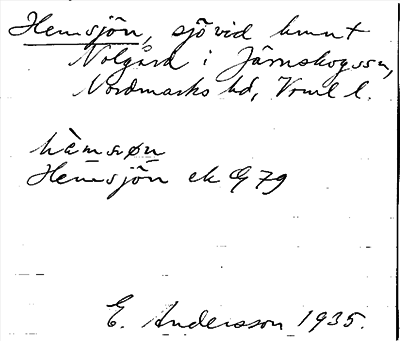 Hemsjön, sjö vid hmnt
Nolgård i Järnskogssn,
Nordmarks hd, Vrml l.
hæ̀msøn
Hemsjön ek G 79
E. Andersson 1935.